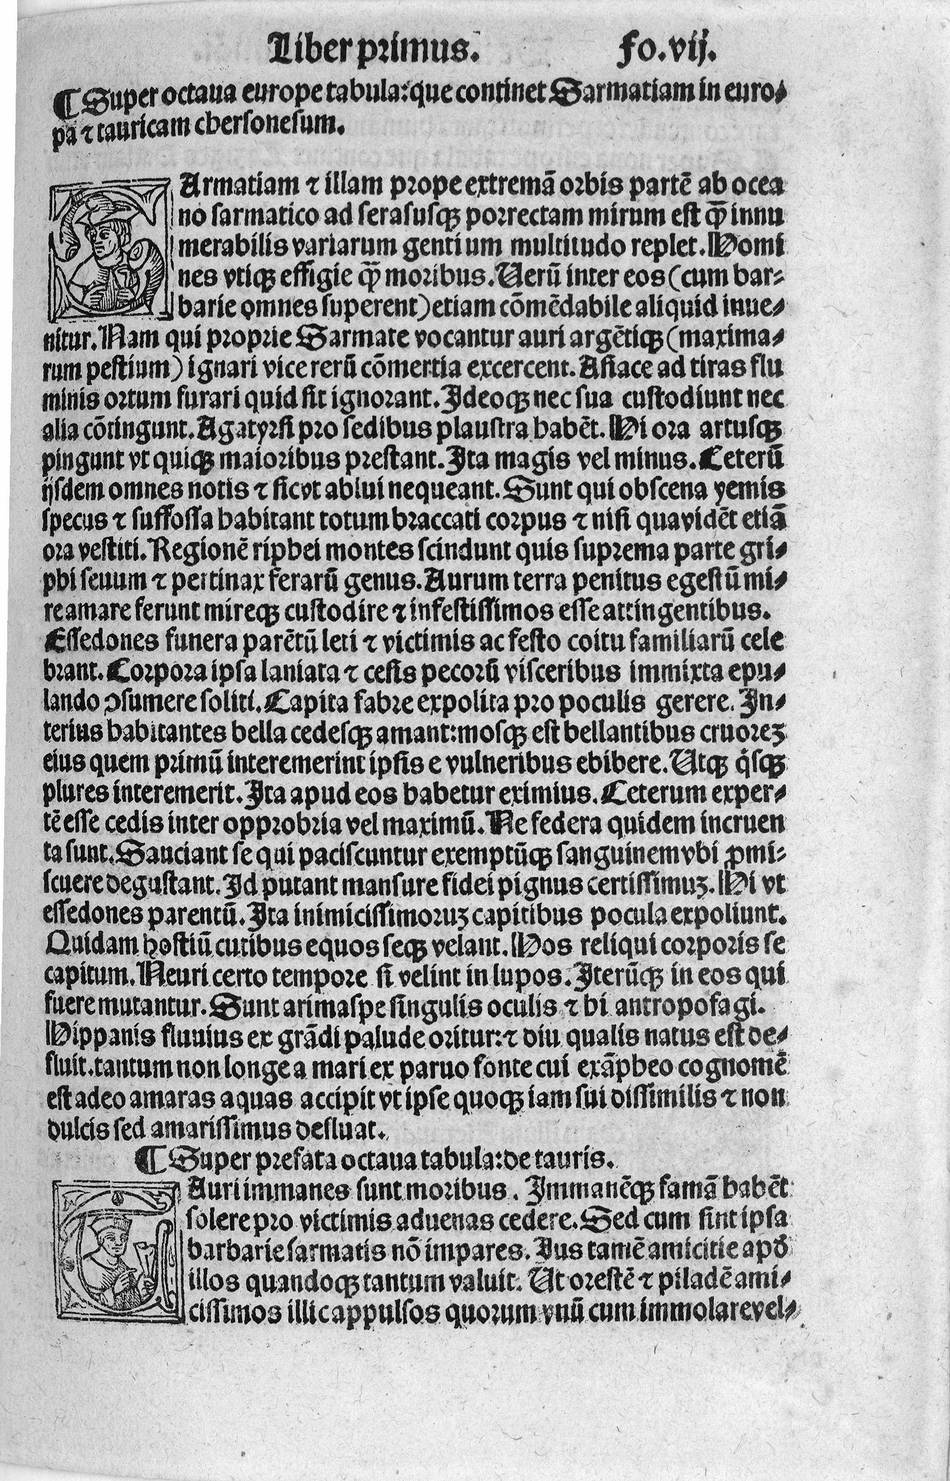 Liber primus. fo.vij.
¶ Super octaua europe tabula:que continet Sarmatiam in euro-
pa ⁊ tauricam chersonesum.
SArmatiam ⁊ illam prope extremā orbis partē ab ocea
no sarmatico ad serasusqꝫ porrectam mirum est qꝫ̄ innu
merabilis variarum gentium multitudo replet. Homi
nes vtiqꝫ effigie qꝫ̄ moribus. Uerū inter eos (cum bar-
barie omnes superent) etiam cōmēdabile aliquid inue-
nitur. Nam qui proprie Sarmate vocantur auri argētiqꝫ (maxima-
rum pestium) ignari vice rerū cōmertia excercent. Asiace ad tiras flu
minis ortum furari quid sit ignorant. Ideoqꝫ nec sua custodiunt nec
alia cōtingunt. Agatyrsi pro sedibus plaustra habēt. Hi ora artusqꝫ
pingunt vt quiqꝫ maioribus prestant. Ita magis vel minus. Ceterū
ijsdem omnes notis ⁊ sic vt ablui nequeant. Sunt qui obscena yemis
specus ⁊ suffossa habitant totum braccati corpus ⁊ nisi qua vidēt etiā
ora vestiti. Regionē riphei montes scindunt quis suprema parte gri-
phi seuum ⁊ pertinax ferarū genus. Aurum terra penitus egestū mi-
re amare ferunt mireqꝫ custodire ⁊ infestissimos esse attingentibus.
Essedones funera parētū leti ⁊ victimis ac festo coitu familiarū cele
brant. Corpora ipsa laniata ⁊ cesis pecorū visceribus immixta epu-
lando ꝯsumere soliti. Capita fabre expolita pro poculis gerere. In-
terius habitantes bella cedesqꝫ amant:mosqꝫ est bellantibus cruorez
eius quem primū interemerint ipsis e vulneribus ebibere. Utqꝫ q̇sqꝫ
plures interemerit. Ita apud eos habetur eximius. Ceterum exper-
tē esse cedis inter opprobria vel maximū. Ne federa quidem incruen
ta sunt. Sauciant se qui paciscuntur exemptūqꝫ sanguinem vbi ꝓmi-
scuere degustant. Id putant mansure fidei pignus certissimuz. Hi vt
essedones parentū. Ita inimicissimoruz capitibus pocula expoliunt.
Quidam hostiū cutibus equos seqꝫ velant. Hos reliqui corporis se
capitum. Neuri certo tempore si velint in lupos. Iterūqꝫ in eos qui
fuere mutantur. Sunt arimaspe singulis oculis ⁊ hi antropofagi.
Hippanis fluuius ex grādi palude oritur:⁊ diu qualis natus est de-
fluit. tantum non longe a mari ex paruo fonte cui exāpheo cognomē
est adeo amaras aquas accipit vt ipse quoqꝫ iam sui dissimilis ⁊ non
dulcis sed amarissimus desluat.
¶ Super prefata octaua tabula:de tauris.
TAuri immanes sunt moribus. Immanēqꝫ famā habēt
solere pro victimis aduenas cedere. Sed cum sint ipsa
barbarie sarmatis nō impares. Ius tamē amicitie apđ
illos quandoqꝫ tantum valuit. Ut orestē ⁊ piladē ami-
cissimos illic appulsos quorum vnū cum immolare vel-